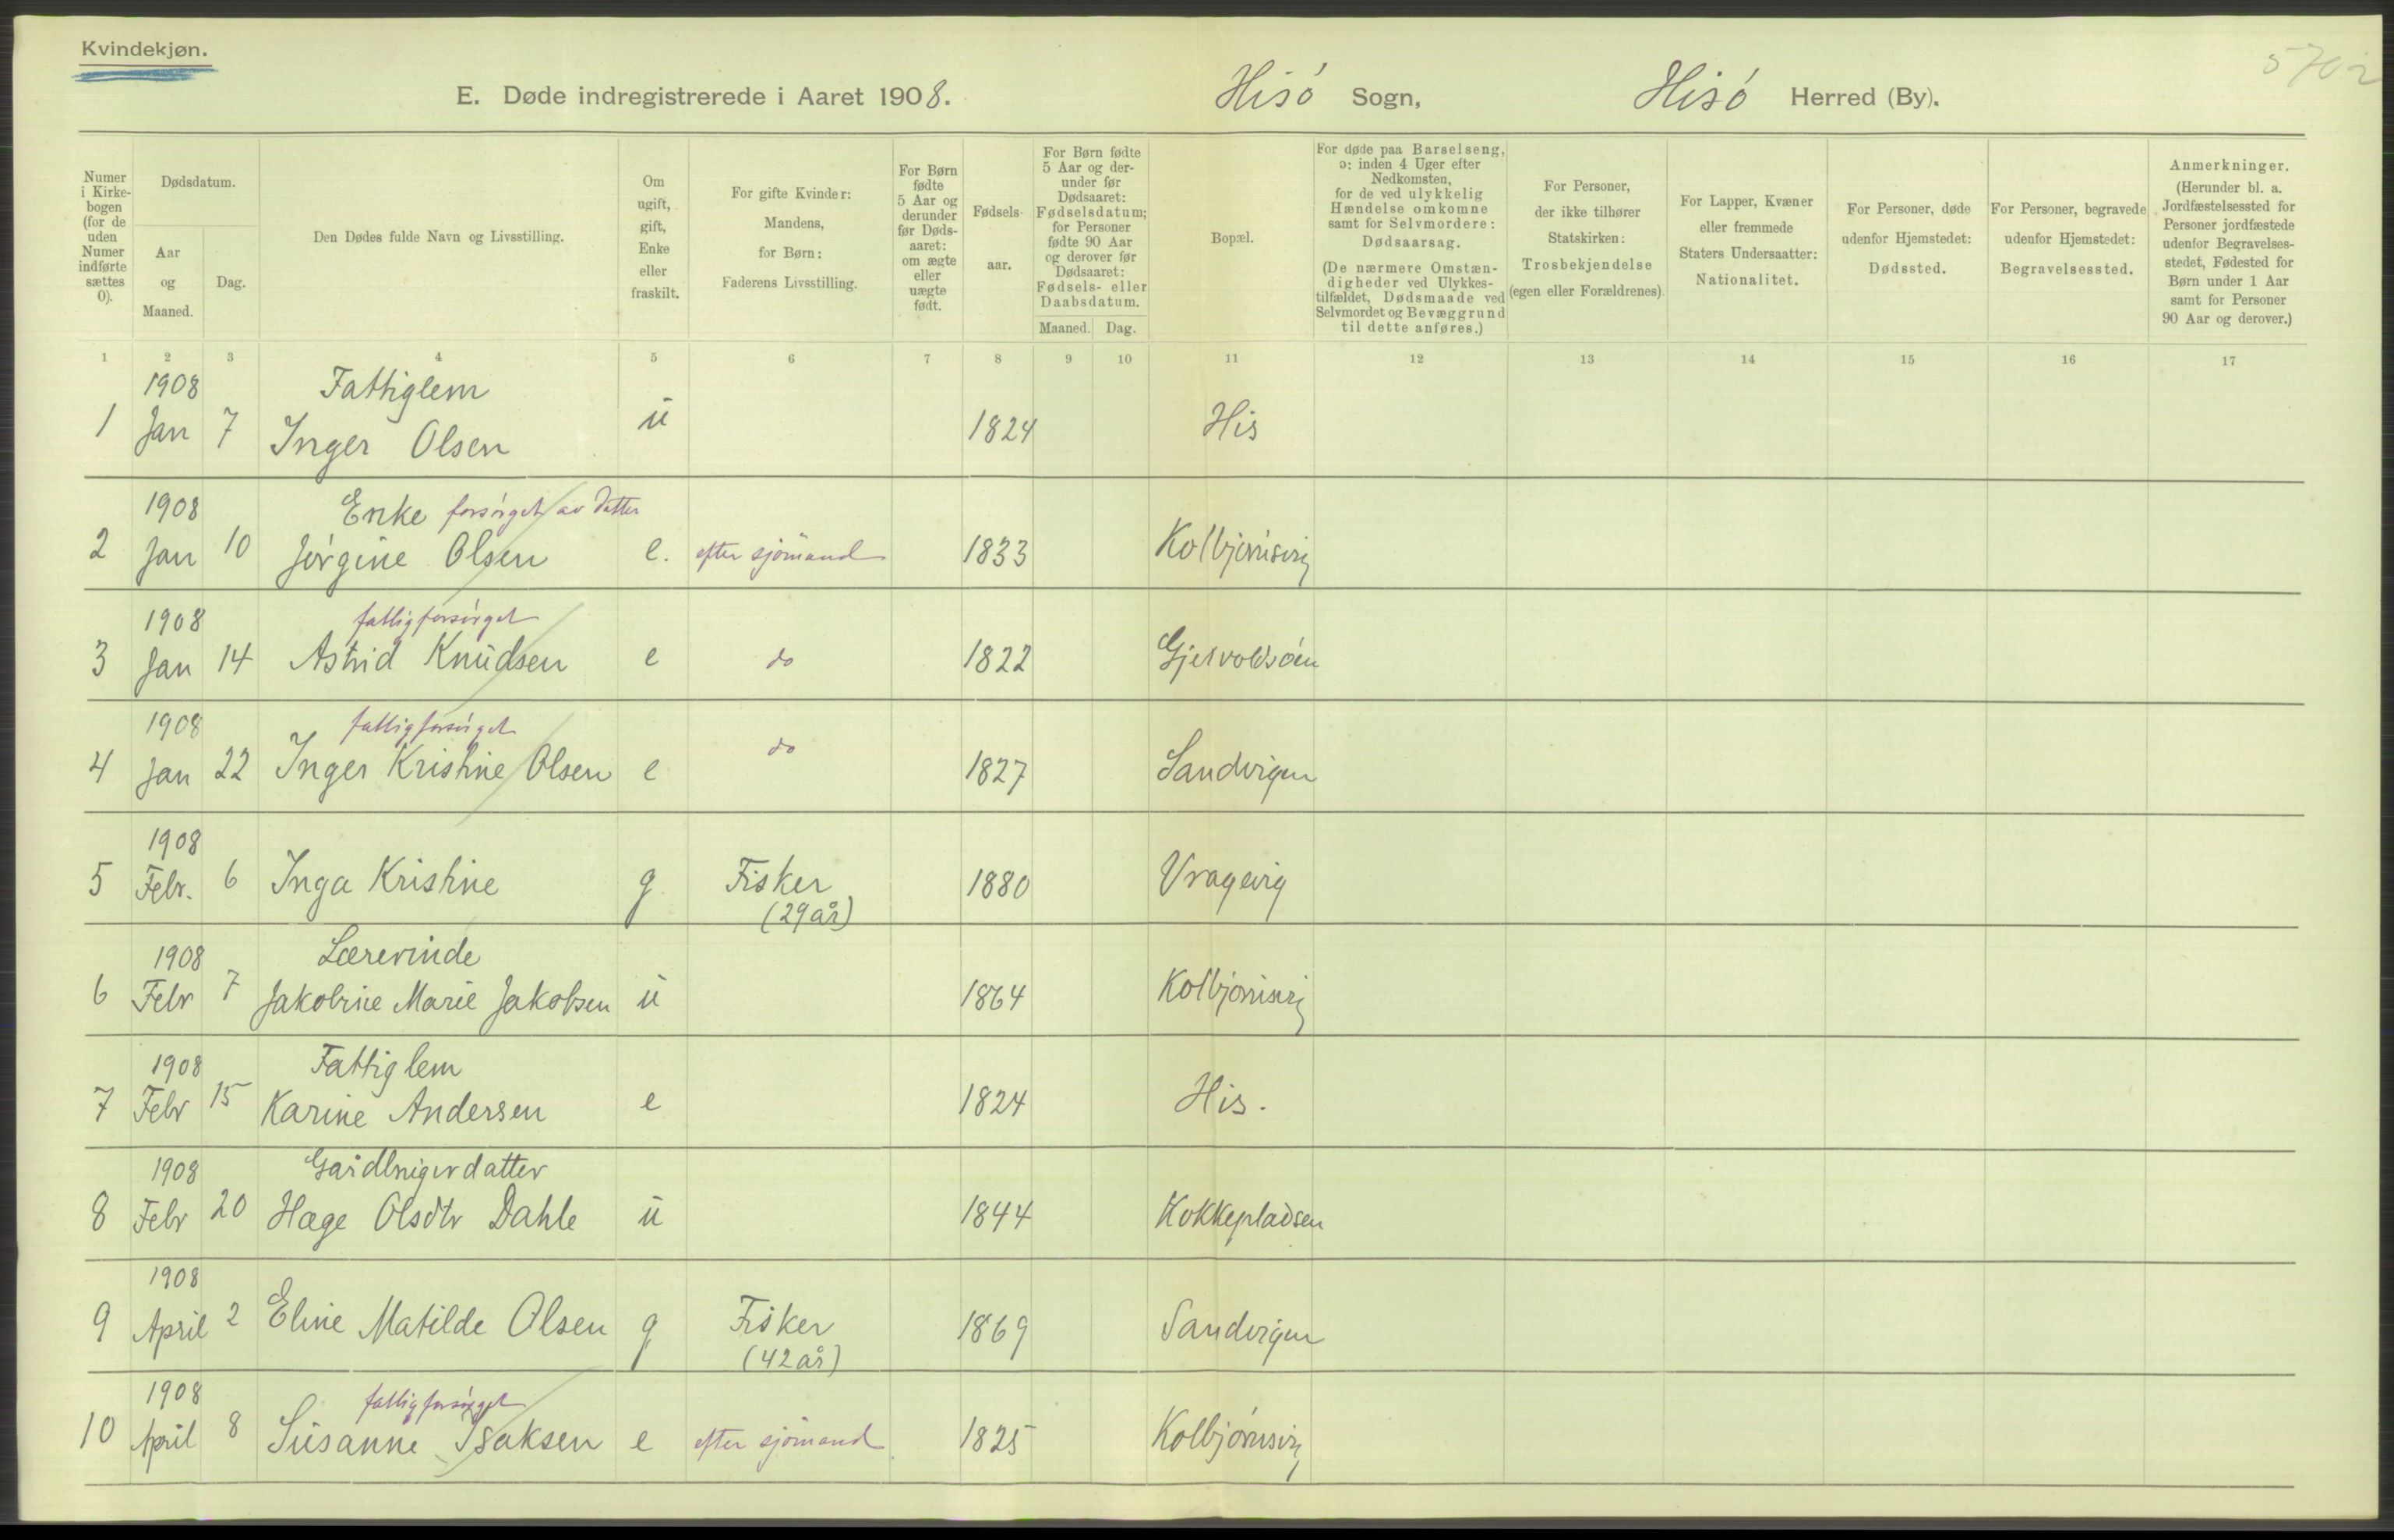 Kvindekjøn.
5702
E. Døde indregistrerede i Aaret 1908. Hisó Sogn, Hisó Herred (By).
Numer i Kirkebogen (for de uden Numer indførte sættes 0).
Dødsdatum.
Aar og Maaned.
Dag.
Den Dødes fulde Navn og Livsstilling.
Om ugift, gift, Enke eller fraskilt.
For gifte Kvinder: Mandens, for Børn: Faderens Livsstilling.
For Børn fødte 5 Aar og derunder før Dødsaaret: om ægte eller uægte født.
Fødselsaar.
For Børn fødte 5 Aar og derunder før Dødsaaret: Fødselsdatum; for Personer fødte 90 Aar og derover før Dødsaaret: Fødsels- eller Daabsdatum.
Maaned. Dag.
Bopæl.
For døde paa Barselseng, ɔ: inden 4 Uger efter Nedkomsten, for de ved ulykkelig Hændelse omkomne samt for Selvmordere: Dødsaarsag.
(De nærmere Omstændigheder ved Ulykkestilfældet, Dødsmaade ved Selvmordet og Bevæggrund til dette anføres.)
For Personer, der ikke tilhører Statskirken: Trosbekjendelse (egen eller Forældrenes).
For Lapper, Kvæner eller fremmede Staters Undersaatter: Nationalitet.
For Personer, døde udenfor Hjemstedet: Dødssted.
For Personer, begravede udenfor Hjemstedet: Begravelsessted.
Anmerkninger.
(Herunder bl. a. Jordfæstelsessted for Personer jordfæstede udenfor Begravelsesstedet, Fødested for Børn under 1 Aar samt for Personer 90 Aar og derover.)
1 2 3 4 5 6 7 8 9 10 11 12 13 14 15 16 17
1908 Fattiglem
1 Jan 7 Inger Olsen u 1824 His
1908 Enke forsörget av datter
2 Jan 10 Jørgine Olsen e. efter sjömand 1833 Kolbjørnsvig
1908 fattigforsörget
3 Jan 14 Astrid Knudsen e do 1822 Gjervoldsöen
1908 fattigforsörget
4 Jan 22 Inger Kristine Olsen e do 1827 Sandvigen
1908
5 Febr. 6 Inga Kristine g Fisker 1880 Vragevig
(29 år)
1908 Lærerinde
6 Febr 7 Jakobine Marie Jakobsen u 1864 Kolbjørnsvig
1908 Fattiglem
7 Febr 15 Karine Andersen e 1824 His.
1908 Gaardbrugerdatter
8 Febr 20 Hæge Olsdtr Dahle u 1844 Kokkepladsen
1908
9 April 2 Eline Matilde Olsen g Fisker 1869 Sandvigen
(42 år)
1908 fattigforsörget
10 April 8 Susanne Isaksen e efter sjömand 1825 Kolbjørnsvig